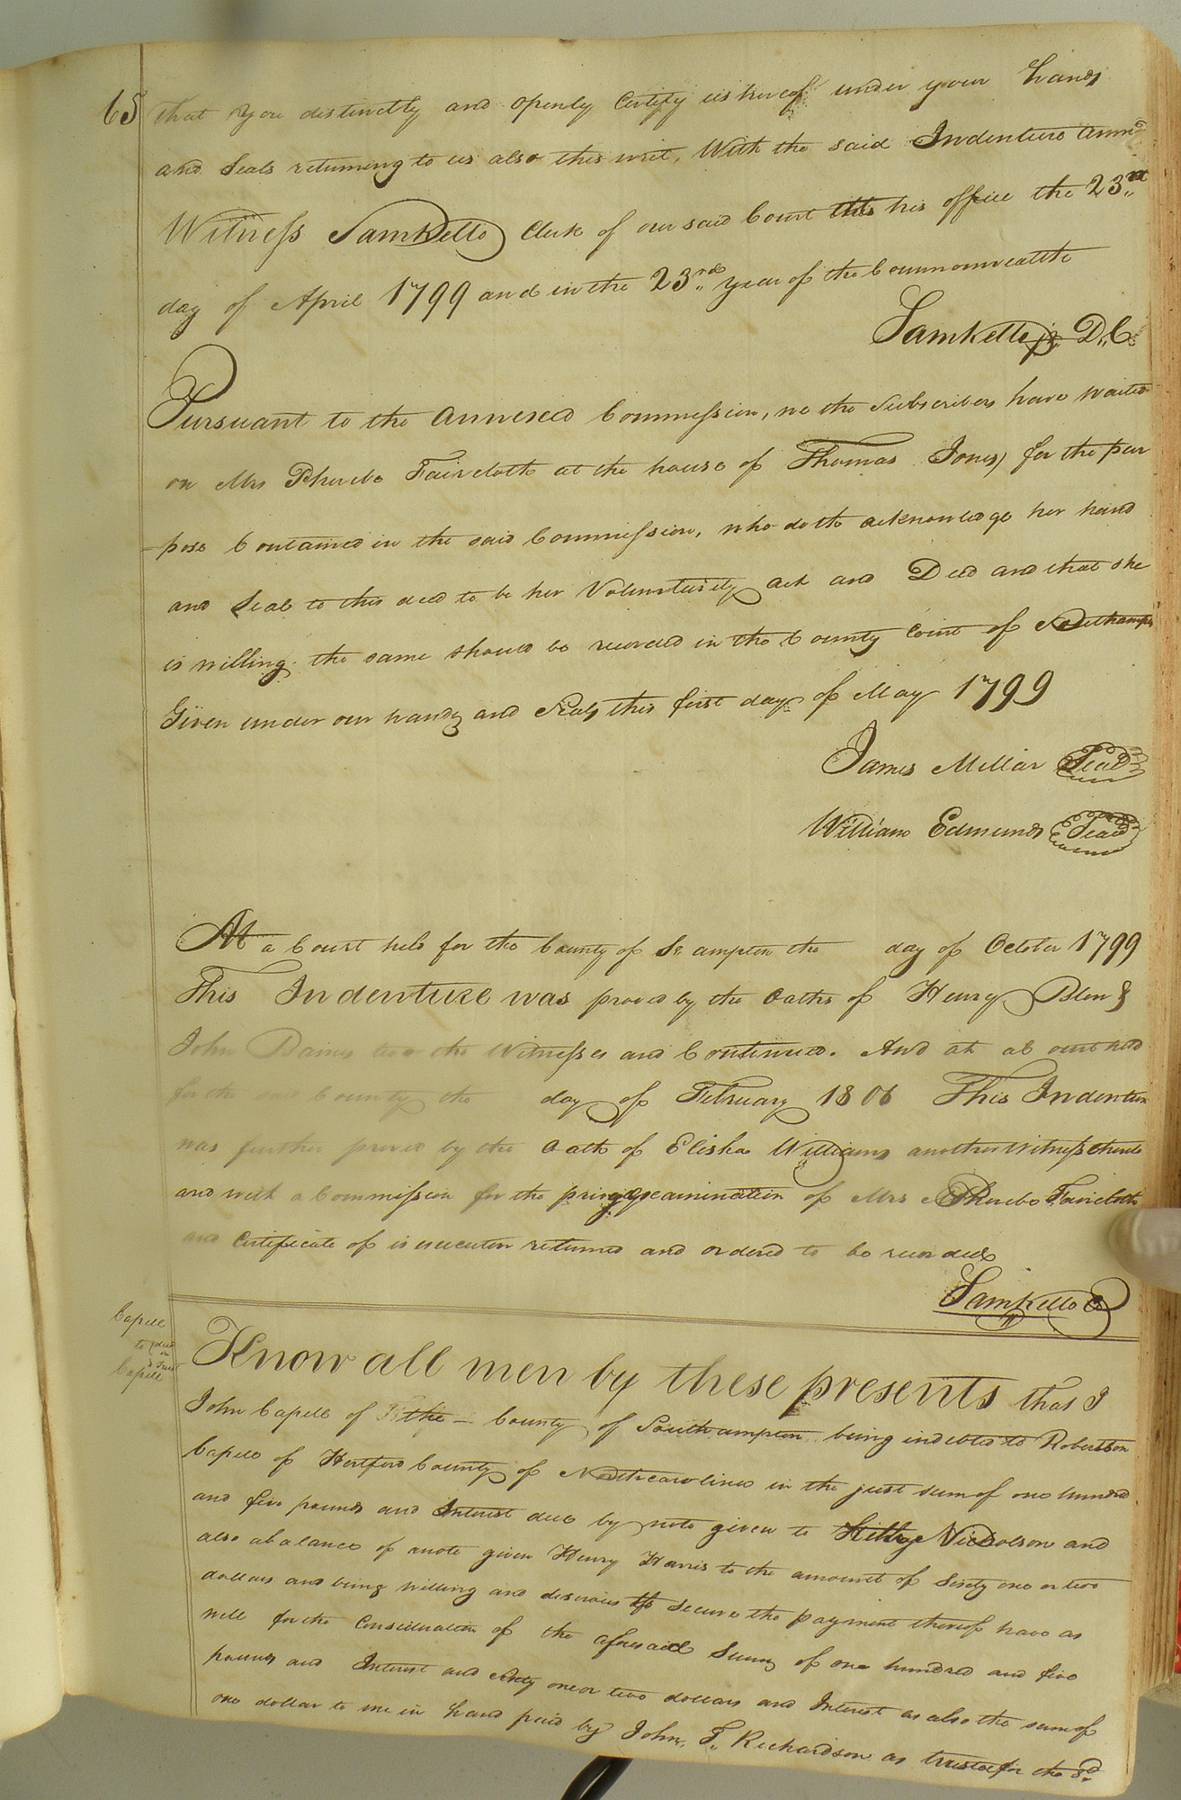 65
that you distinctly and openly Certify us hereof under your hands
and Seals returning to us also this writ, With the said Indenture Annxd
Witness Sam Kello Clerk of our said Court this his office the 23rd
day of April 1799 and in the 23rd year of the Commonwealth
Sam Kello jr D.C.
Pursuant to the annexed Commission, we the Subscribers have waited
on Mrs Pherebe Faircloth at the house of Thomas Jones, for the pur
pose Contained in the said Commission, who doth acknowledge her hand
and Seal to this deed to be her Voluntarily act and Deed and that she
is willing the same should be recorded in the County Court of Southampn
Given under our hands and Seals this first day of May 1799
James Millar Seal
William Edmunds Seal
At a Court held for the County of So. ampton the day of October 1799
This Indenture was proved by the Oaths of Henry Blow &
John Barnes two the Witnesses and Continued. And at a Court held
for the said County the day of February 1806 This Indenture
was further proved by the Oath of Elisha Williams another Witness thereto
and with a Commission for the privy examination of Mrs Pherebe Faircloth
and Certificate of is execution returned and ordered to be recorded
Sam Kello C
Capell
to deed
in Trust
Capell
Know all men by these presents that I
John Capell of the County of Southampton being indebted to Robertson
Capell of Hertford County of North carolina in the just sum of one hundred
and five pounds and Interest due by note given to Nicholson and
also a balance of anote given Henry Harris to the amount of Sixty one or two
dollars and being willing and desirous to secure the payment thereof have as
well for the Consideration of the aforesaid Sum of one hundred and five
pounds and Interest and sixty one or two dollars and Interest as also the sum of
one dollar to me in hand paid by John T. Richardson as trustee for the sd.